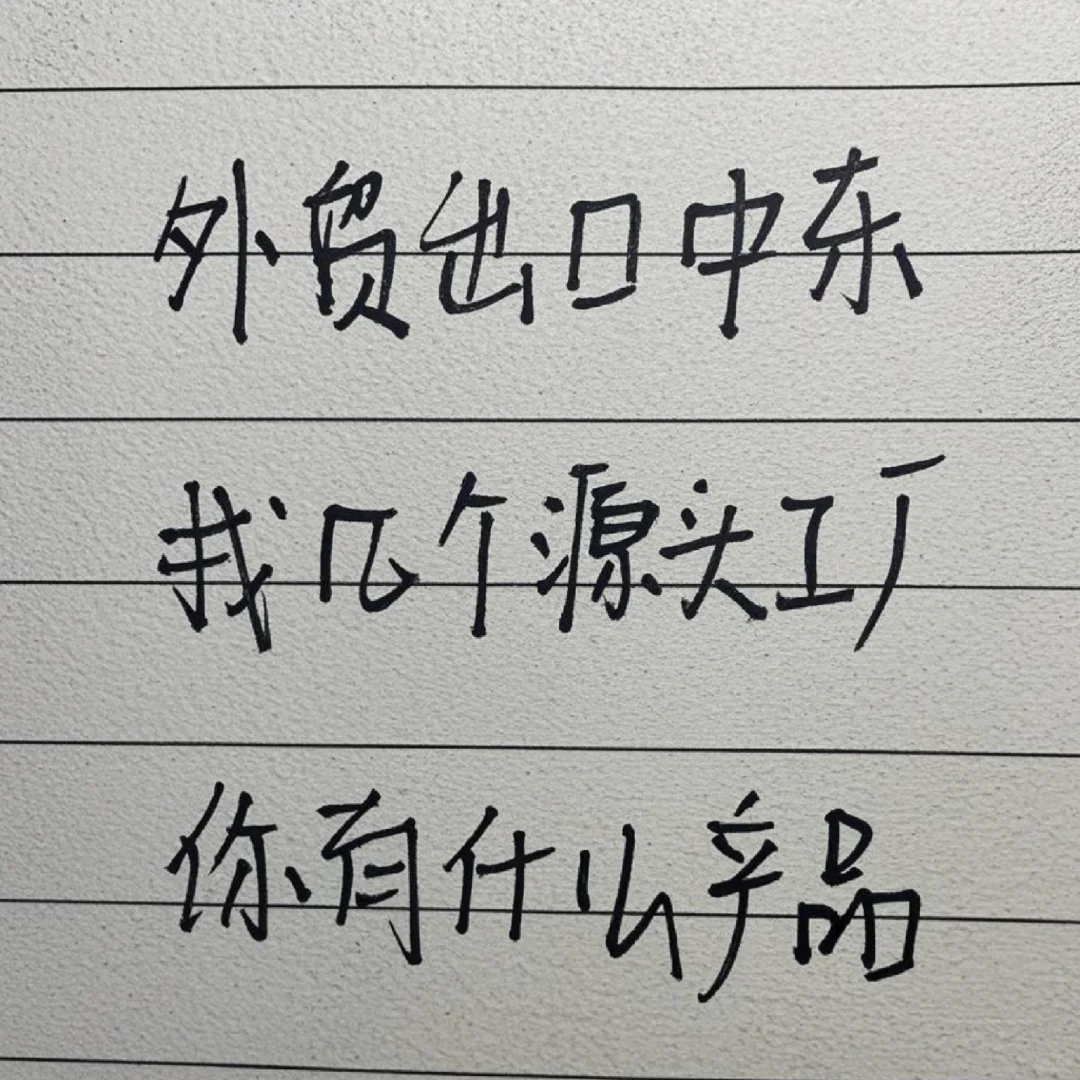 外贸出口中东
找几个源头工厂
你有什么产品